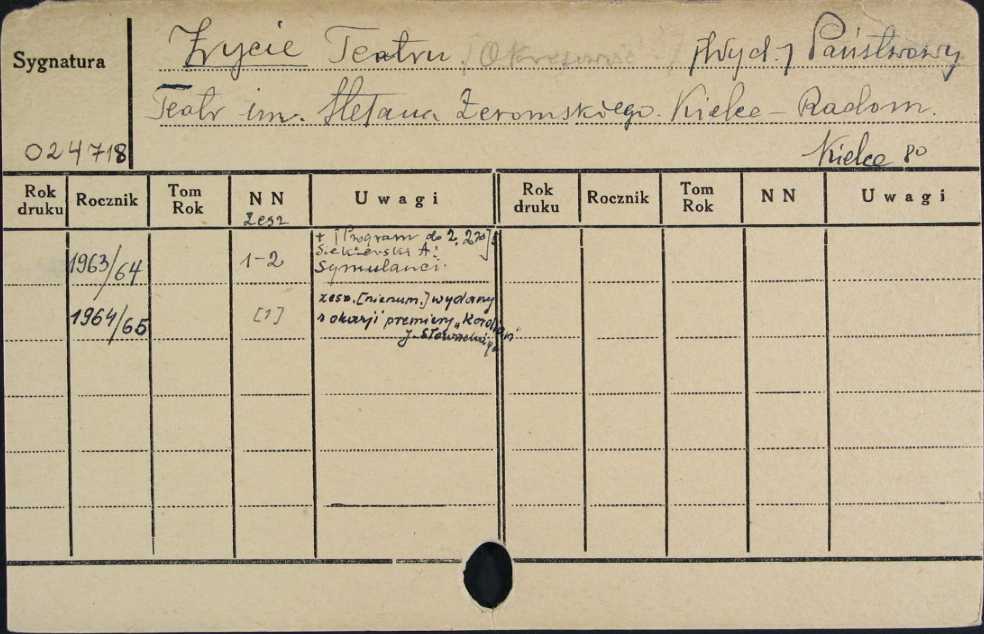 Sygnatura
Życie Teatru [Wyd.] Państwowy
Teatr im. Stefana Żeromskiego. Kielce – Radom.
024718 Kielce 80
Rok druku Rocznik Tom Rok N N Uwagi Rok druku Rocznik Tom Rok N N Uwagi
Zesz
+ [Program do z. 2]
1963/64 1-2
Symulanci.
zesz. [nienum.] wydany
1964/65 [1] z okazji premiery „Kordian"
J. Słowackiego